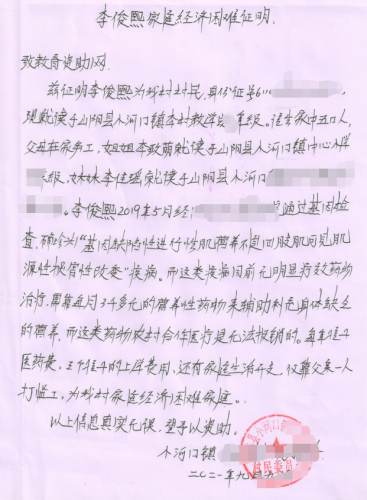 李俊熙家庭经济困难证明.
致教育资助网.
兹证明李俊熙为我村村民,身份证号6
现就读于山阳县小河口镇李村教学 年级。该生家中五口人,
父母在家务工,姐姐李 萌就读于山阳县小河口镇中心小学
年级,妹妹李佳瑶就读于山阳县小河口
。李俊熙2019年5月经 通过基因检
查,确诊为“基因缺陷性进行性肌营养不良四肢肌肉见肌
源性损害性改变”疾病。而这类疾病目前无明显疗效药物
治疗,需靠每月3千多元的营养性药物来辅助补充身体缺乏
的营养,而这类药物农村合作医疗是无法报销的。每年近4
医药费,三个娃子的上学费用,还有家庭生活开支,仅靠父亲一人
打临工,为我村家庭经济困难家庭。
以上信息真实无误,望予以资助。
小河口镇
县小河口
村民委员
二〇二一年九月